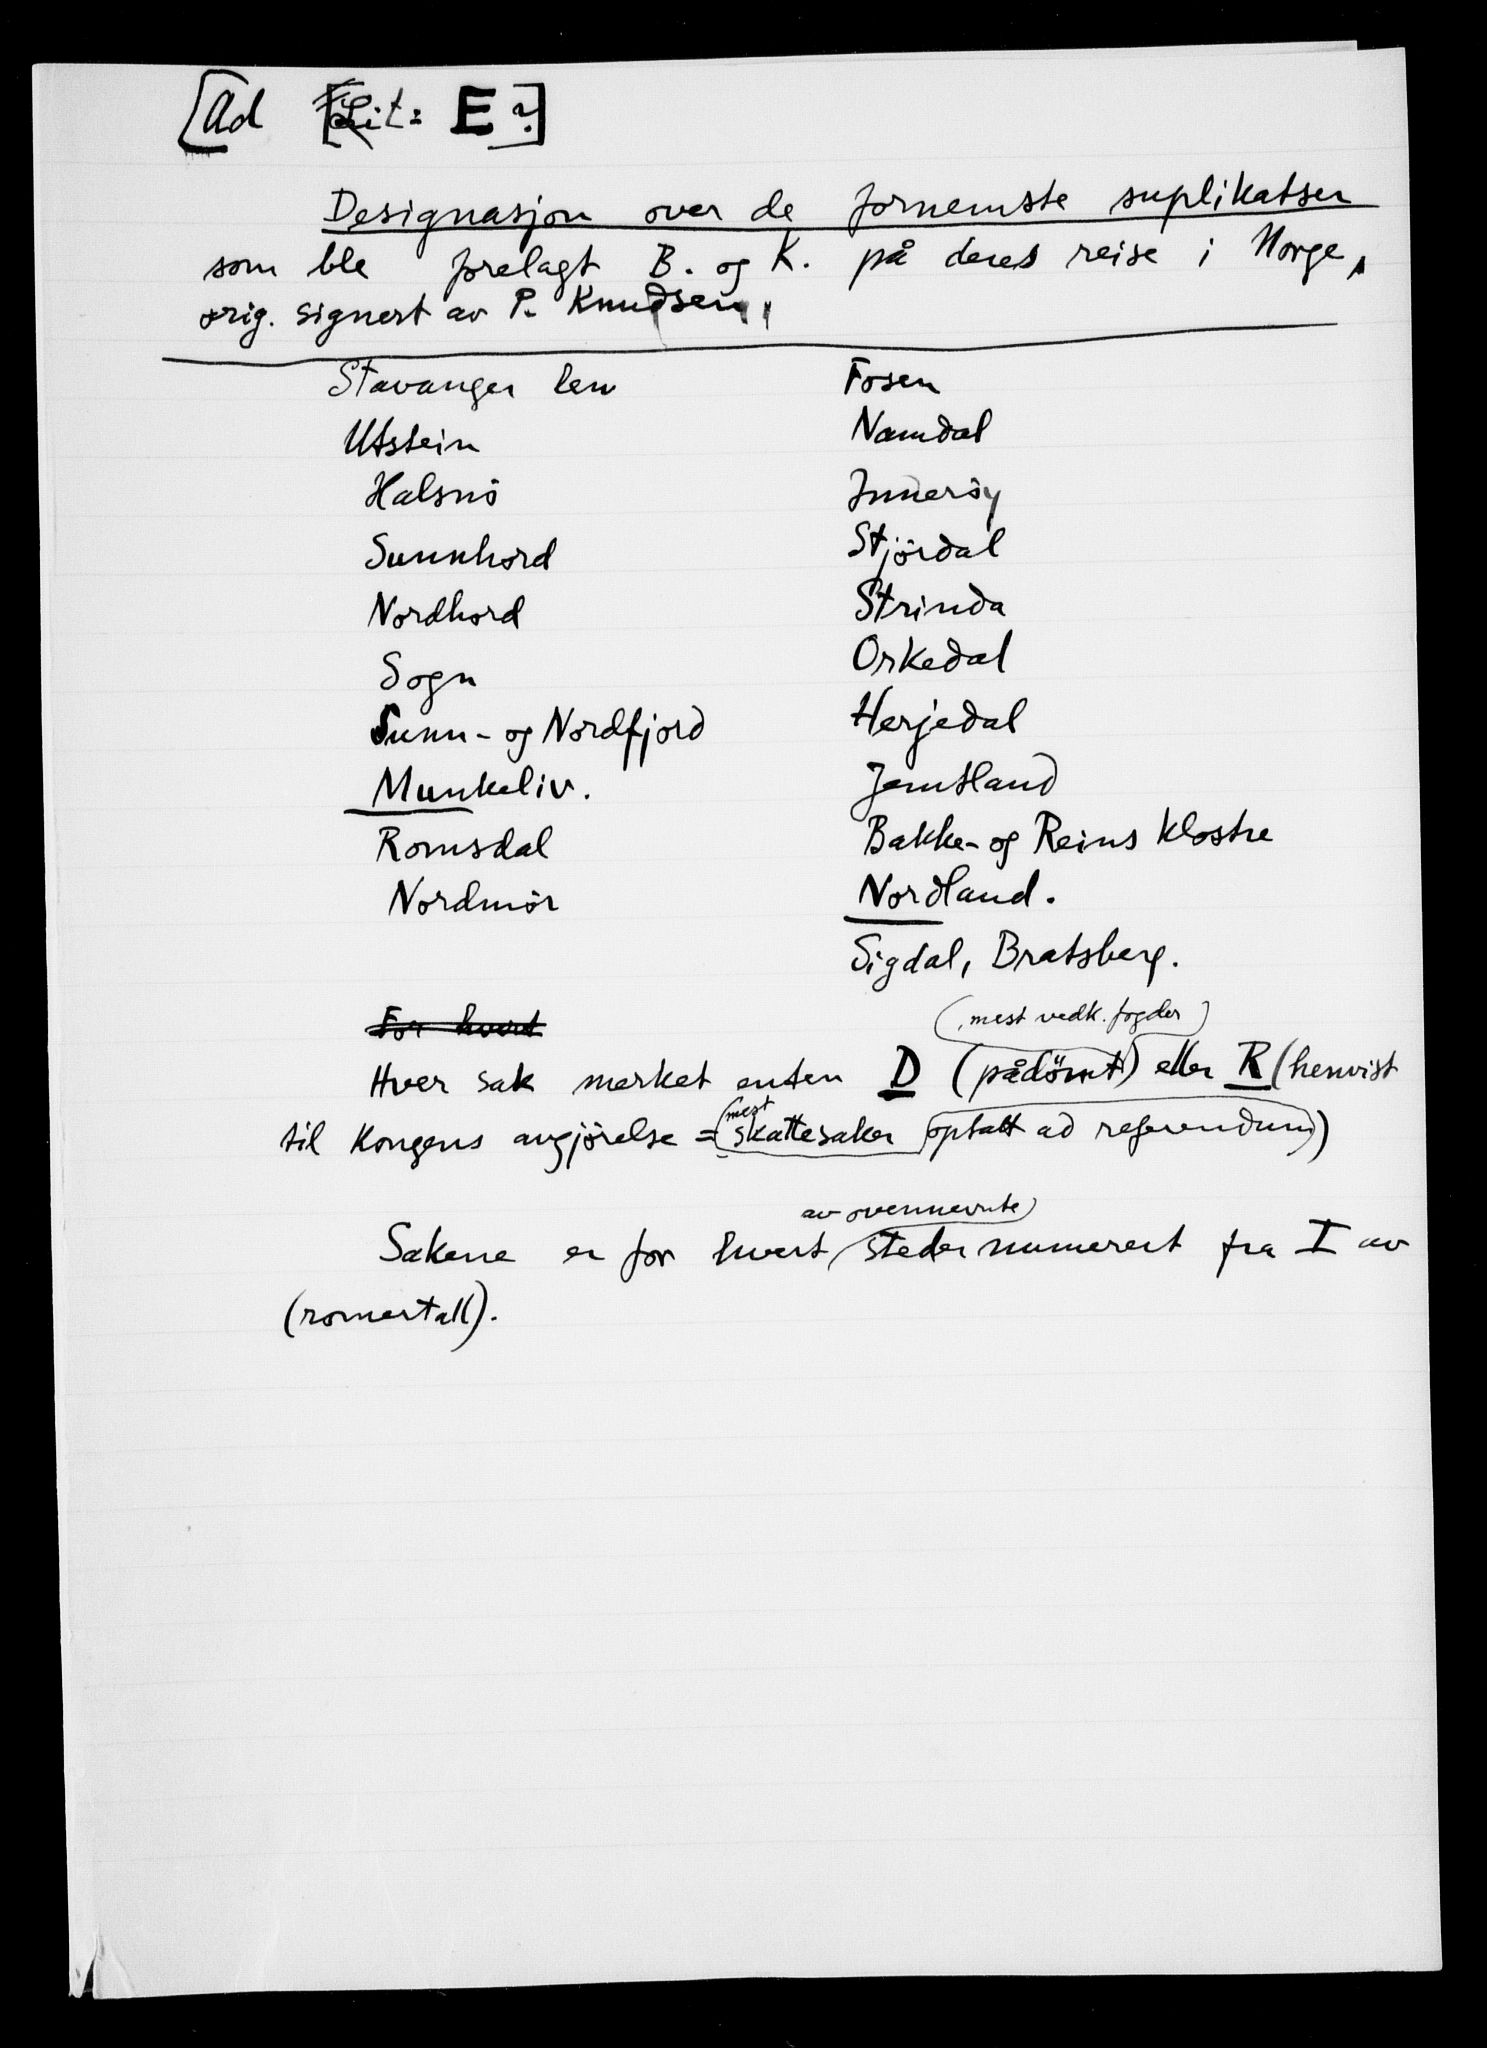 [Ad Lit: E?]
Designasjon over de fornemste suplikatser
som ble forelagt B. og K. på deres reise i Norge,
orig. signert av P. Knudsen,
Stavanger len
Utstein
Halsnö
Sunnhord
Nordhord
Sogn
Sunn- og Nordfjord
Munkeliv.
Romsdal
Nordmör
Fosen
Namdal
Inneröy
Stjördal
Strinda
Orkedal
Herjedal
Jemtland
Bakke- og Reins Klostre
Nordland.
Sigdal, Bratsberg.
For hvert
(mest vedk. fogder)
Hver sak merket enten D (pådömt) eller R (henvist
til Kongens avgjörelse = mest skattesaker optatt ad referendum)
av ovennevnte
Sakene er for hvert steder numerert fra I av
(romertall).